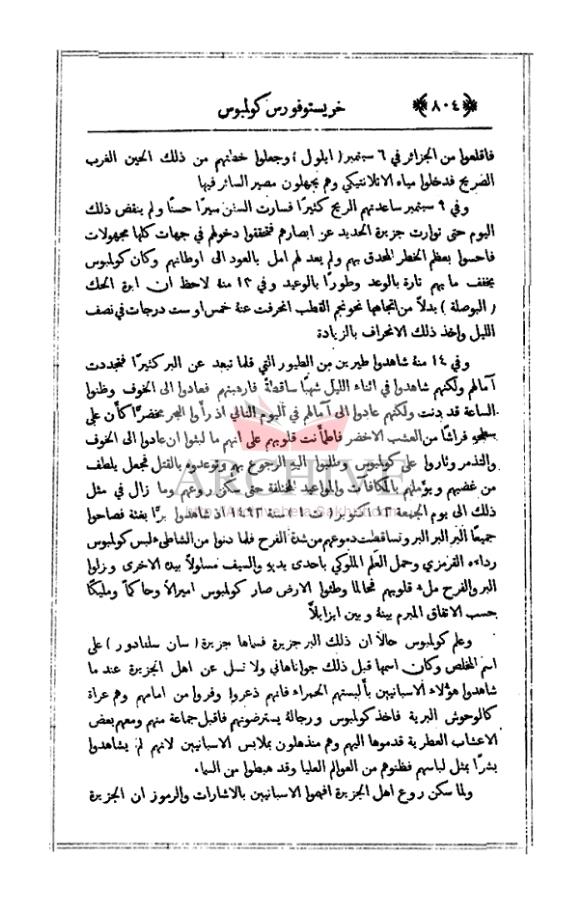 ﴿٨٠٤﴾ خريستوفورس كولمبوس
فاقلعوا من الجزائر في ٦ سبتمبر (ايلول) وجعلوا خطتهم من ذلك الحين الغرب
الصريح فدخلوا مياه الاتلانتيكي وهم يجهلون مصير السائر فيها
وفي ٩ سبتمبر ساعدتهم الريح كثيرًا فسارت السفن سيرًا حسنًا ولم ينقض ذلك
اليوم حتى توارت جزيرة الحديد عن ابصارهم فتحققوا دخولهم في جهات كلها مجهولات
فاحسوا بعظم الخطر المحدق بهم ولم يعد لهم امل بالعود الى اوطانهم وكان كولمبوس
يخفف ما بهم تارة بالوعد وطورًا بالوعيد وفي ١٣ منهُ لاحظ ان ابرة الحك
(البوصلة) بدلاً من اتجاهها نحو نجم القطب انحرفت عنهُ خمس او ست درجات في نصف
الليل واخذ ذلك الانحراف بالزيادة
وفي ١٤ منهُ شاهدوا طيرين من الطيور التي قلما تبعد عن البر كثيرًا فتجددت
آمالهم ولكنهم شاهدوا في اثناء الليل شهبًا ساقطةً فارهبتهم فعادوا الى الخوف وظنوا
الساعة قد دنت ولكنهم عادوا الى آمالهم في اليوم التالي اذ رأوا البحر مخضرًّا كأن على
سطحهِ فراشًا من العشب الاخضر فاطمأنت قلوبهم على انهم ما لبثوا ان عادوا الى الخوف
والتذمر وثاروا على كولمبوس وطلبوا اليهِ الرجوع بهم وتوعدوه بالقتل فجعل يلطف
من غضبهم ويؤملهم بالمكافآت والمواعيد المختلفة حتى سكن روعهم وما زال في مثل
ذلك الى يوم الجمعة ١٢ اكتوبر (ت ١) سنة ١٤٩٢ اذ شاهدوا برًّا بغتة فصاحوا
جميعًا البر البر البر وتساقطت دموعهم من شدة الفرح فلما دنوا من الشاطئ لبس كولمبوس
رداءه القرمزي وحمل العلم الملوكي باحدى يديهِ والسيف مسلولاً بيده الاخرى ونزلوا
البر والفرح ملء قلوبهم فحالما وطئوا الارض صار كولمبوس اميرالاً وحاكمًا ومليكًا
حسب الاتفاق المبرم بينهُ وبين ايزابلاَّ
وعلم كولمبوس حالاً ان ذلك البر جزيرة فسماها جزيرة (سان سلفادور) على
اسم المخلص وكان اسمها قبل ذلك جواناهاني ولا تسل عن اهل الجزيرة عند ما
شاهدوا هؤلاء الاسبانيين بألبستهم الحمراء فانهم ذعروا وفروا من امامهم وهم عراة
كالوحوش البرية فاخذ كولمبوس ورجالهُ يسترضونهم فاقبل جماعة منهم ومعهم بعض
الاعشاب العطرية قدموها اليهم وهم منذهلون بملابس الاسبانيين لانهم لم يشاهدوا
بشرًا بمثل لباسهم فظنوهم من العوالم العليا وقد هبطوا من السماء
ولما سكن روع اهل الجزيرة افهموا الاسبانيين بالاشارات والرموز ان الجزيرة
ARCHIVE